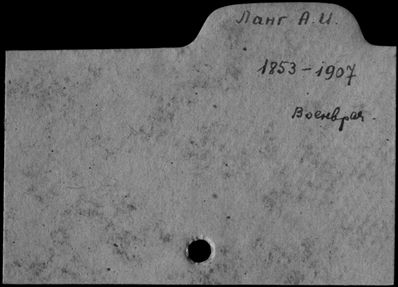 Ланг А.И.
1853-1907
Военврач.